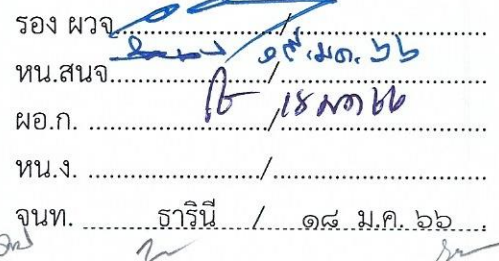 รอง ผวจ............................/............................
หน.สนจ............................/ ๑๙ ม.ค. ๖๖
ผอ.ก. ............................/ 18 มค 66
หน.ง. ............................/............................
จนท. ............ธารินี / ๑๘ ม.ค. ๖๖